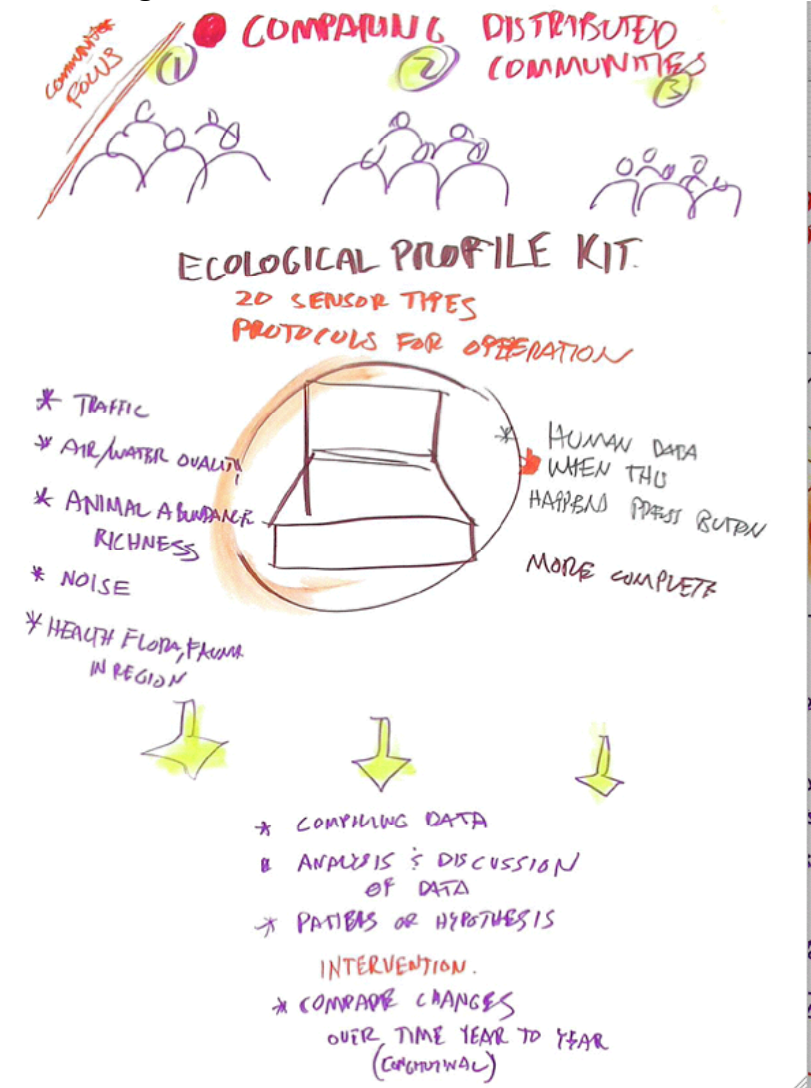 COMPARING DISTRIBUTED
COMMUNITIES
COMMUNITY
FOCUS
1
2
3
ECOLOGICAL PROFILE KIT.
20 SENSOR TYPES
PROTOCOLS FOR OPERATION
* TRAFFIC
* AIR/WATER QUALITY
* ANIMAL ABUNDANCE
RICHNESS
* NOISE
* HEALTH FLORA, FAUNA
IN REGION
* HUMAN DATA
WHEN THIS
HAPPENS PRESS BUTTON
MORE COMPLETE
* COMPILING DATA
* ANALYSIS & DISCUSSION
OF DATA
* PATTERNS OR HYPOTHESIS
INTERVENTION.
* COMPARE CHANGES
OVER TIME YEAR TO YEAR
(LONGITUDINAL)